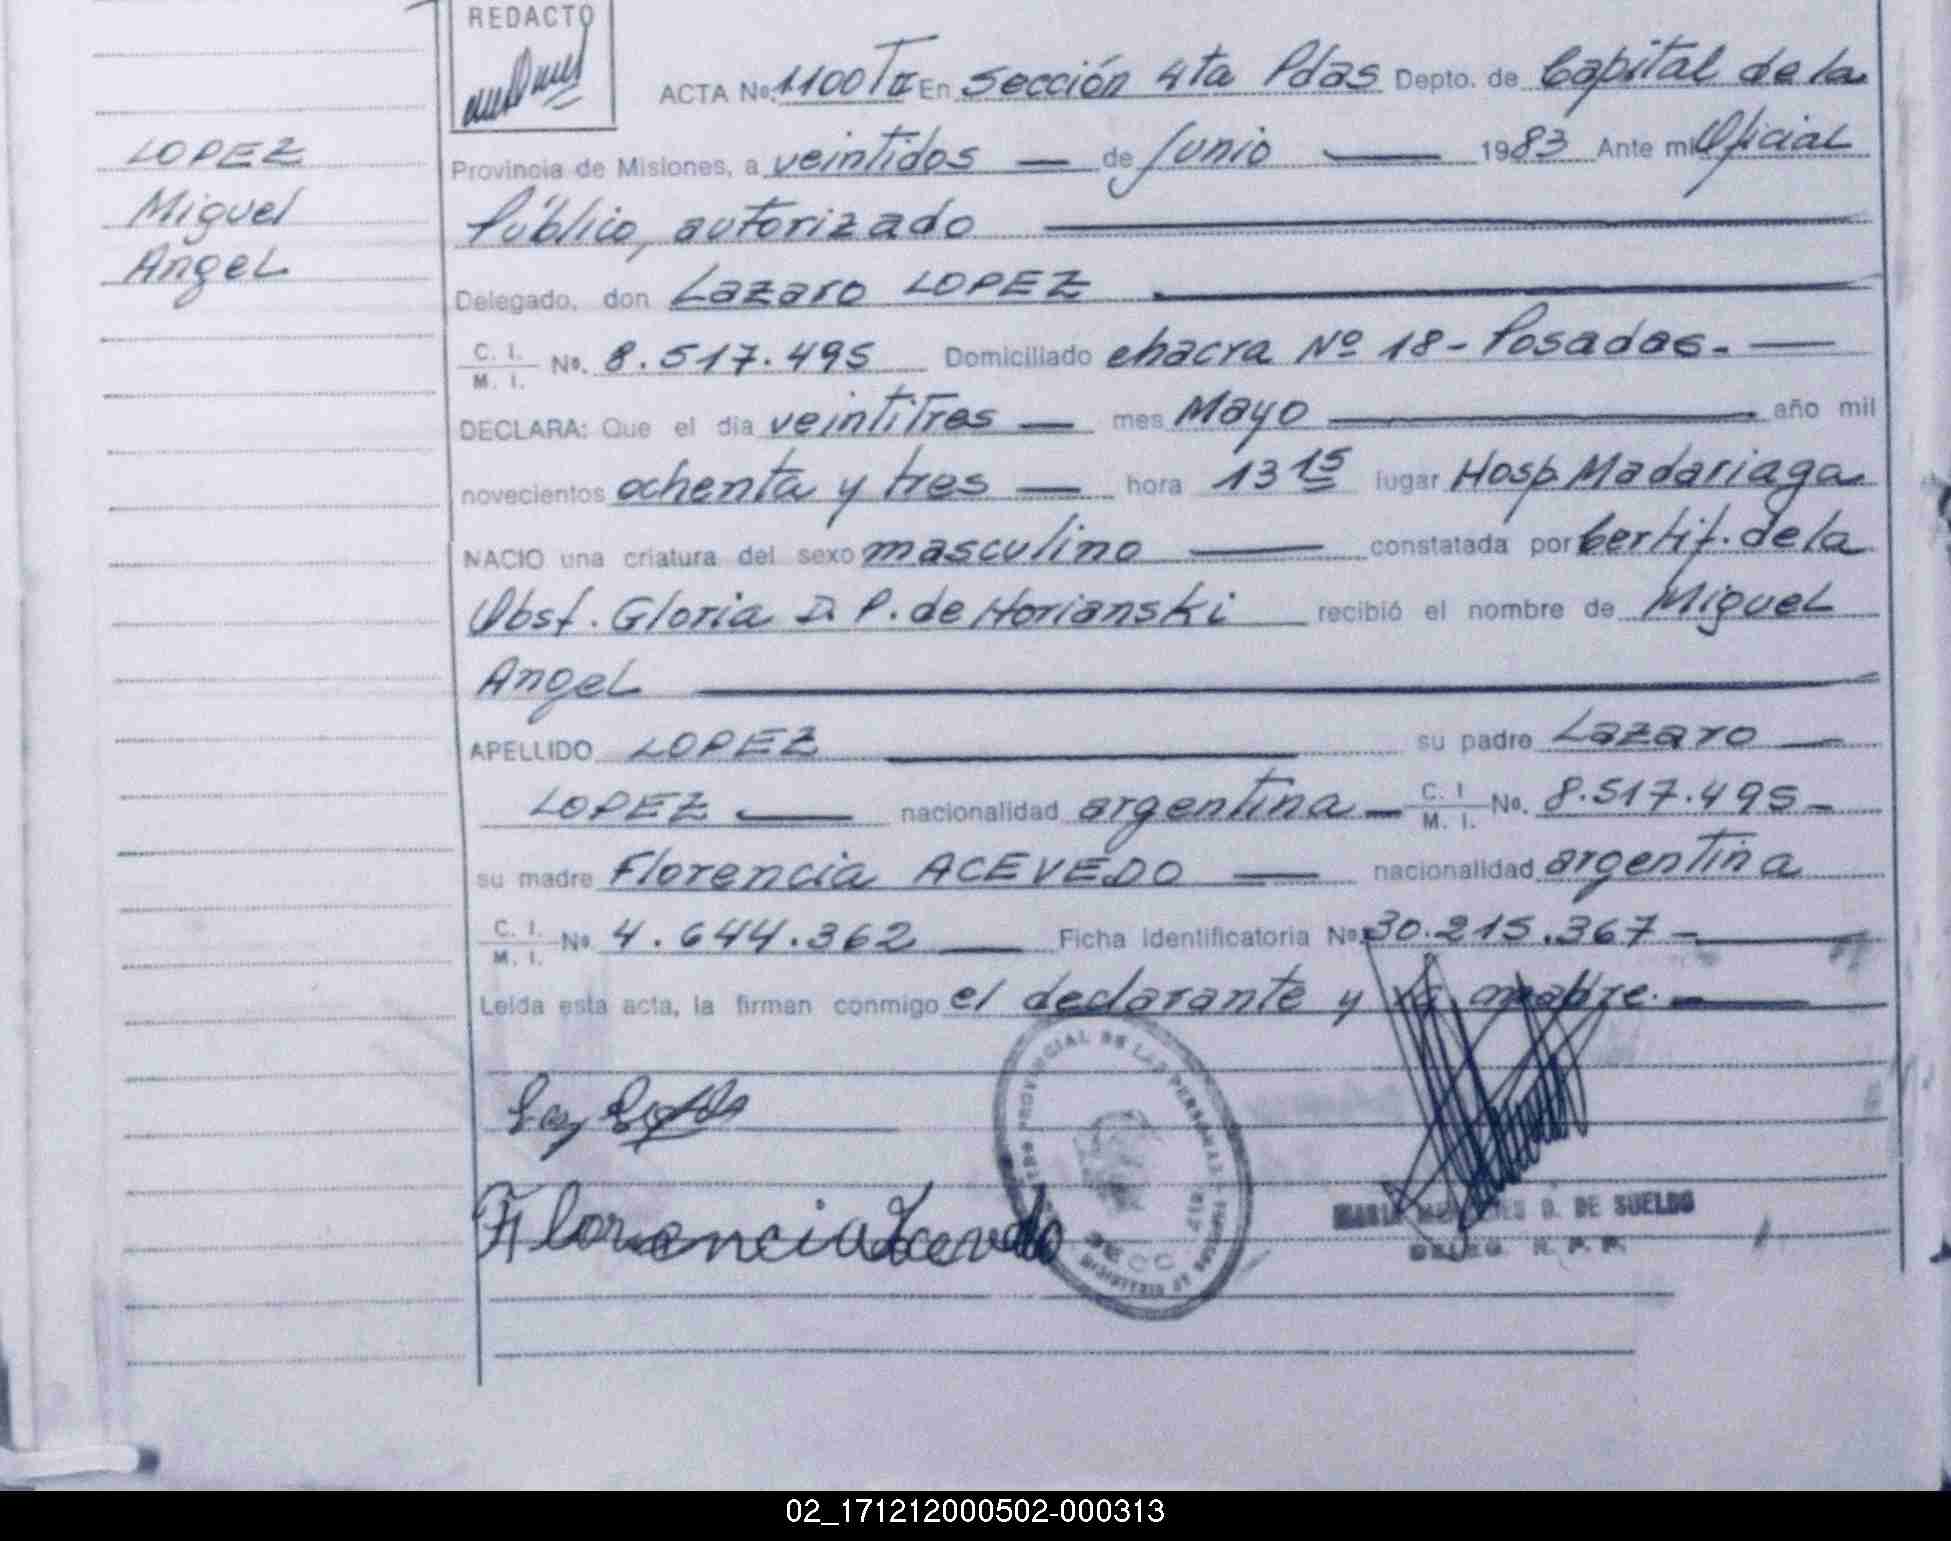 REDACTO
ACTA No. 1100 TII En Sección 4ta Pdas Depto. de Capital de la
LOPEZ
Miguel
Angel
Provincia de Misiones, a veintidos — de Junio — 1983 Ante mi Oficial
Público, autorizado —
Delegado, don Lazaro LOPEZ —
C. I. / M. I. No. 8.517.495 Domiciliado chacra Nº 18 - Posadas. —
DECLARA: Que el dia veintitres — mes Mayo — año mil
novecientos ochenta y tres — hora 13 15 lugar Hosp. Madariaga
NACIO una criatura del sexo masculino — constatada por Certif. de la
Obst. Gloria D. P. de Horianski recibió el nombre de Miguel
Angel —
APELLIDO LOPEZ — su padre Lazaro —
LOPEZ — nacionalidad argentina — C. I. / M. I. No. 8.517.495 —
su madre Florencia ACEVEDO — nacionalidad argentina
C. I. / M. I. No. 4.644.362 — Ficha Identificatoria No. 30.215.367 —
Leida esta acta, la firman conmigo el declarante y la madre. —
PROVINCIAL DE LAS PERSONAS
Florencia Acevedo
MARIA D. DE SUELDO
DELEG. R. P. P.
02_171212000502-000313